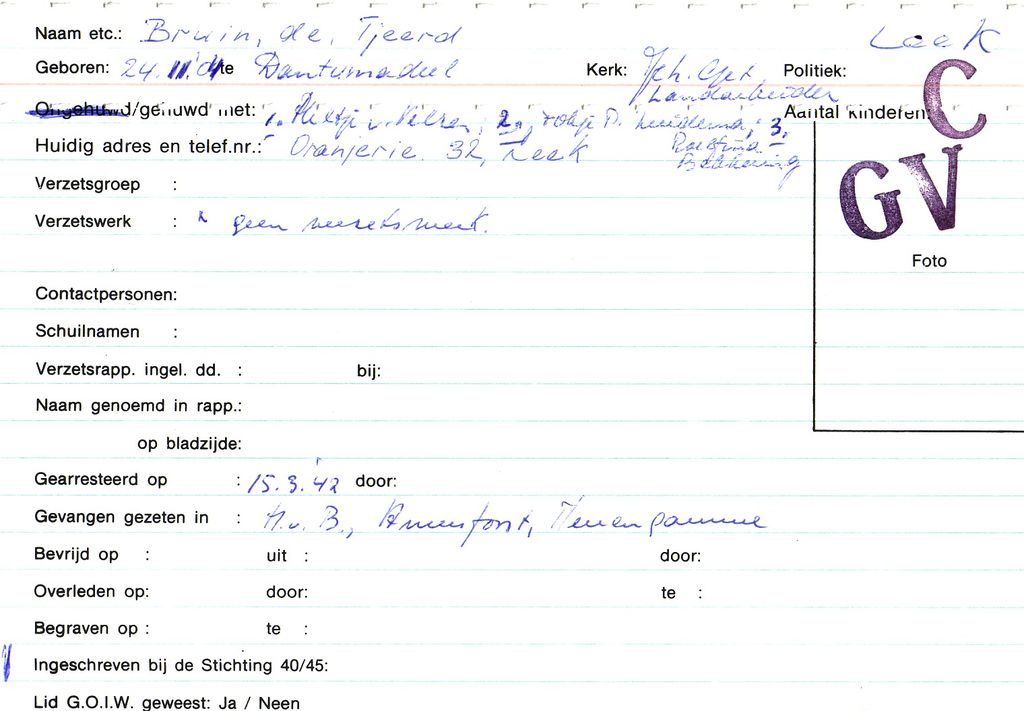 Leek
Naam etc.: Bruin, de, Tjeerd
Geboren: 24.11.04 te Dantumadeel Kerk: Jeh. Get. Politiek:
Landarbeider
Ongehuwd/gehuwd met: 1. v. 2. 3. Aantal kinderen:
Huidig adres en telef.nr.: Oranjerie 32, Leek
C
GV
Verzetsgroep :
Verzetswerk : geen verzetswerk.
Foto
Contactpersonen:
Schuilnamen :
Verzetsrapp. ingel. dd. : bij:
Naam genoemd in rapp.:
op bladzijde:
Gearresteerd op : 15.3.'42 door:
Gevangen gezeten in : H.v.B., Amersfoort, Neuengamme
Bevrijd op : uit : door:
Overleden op: door: te :
Begraven op : te :
Ingeschreven bij de Stichting 40/45:
Lid G.O.I.W. geweest: Ja / Neen